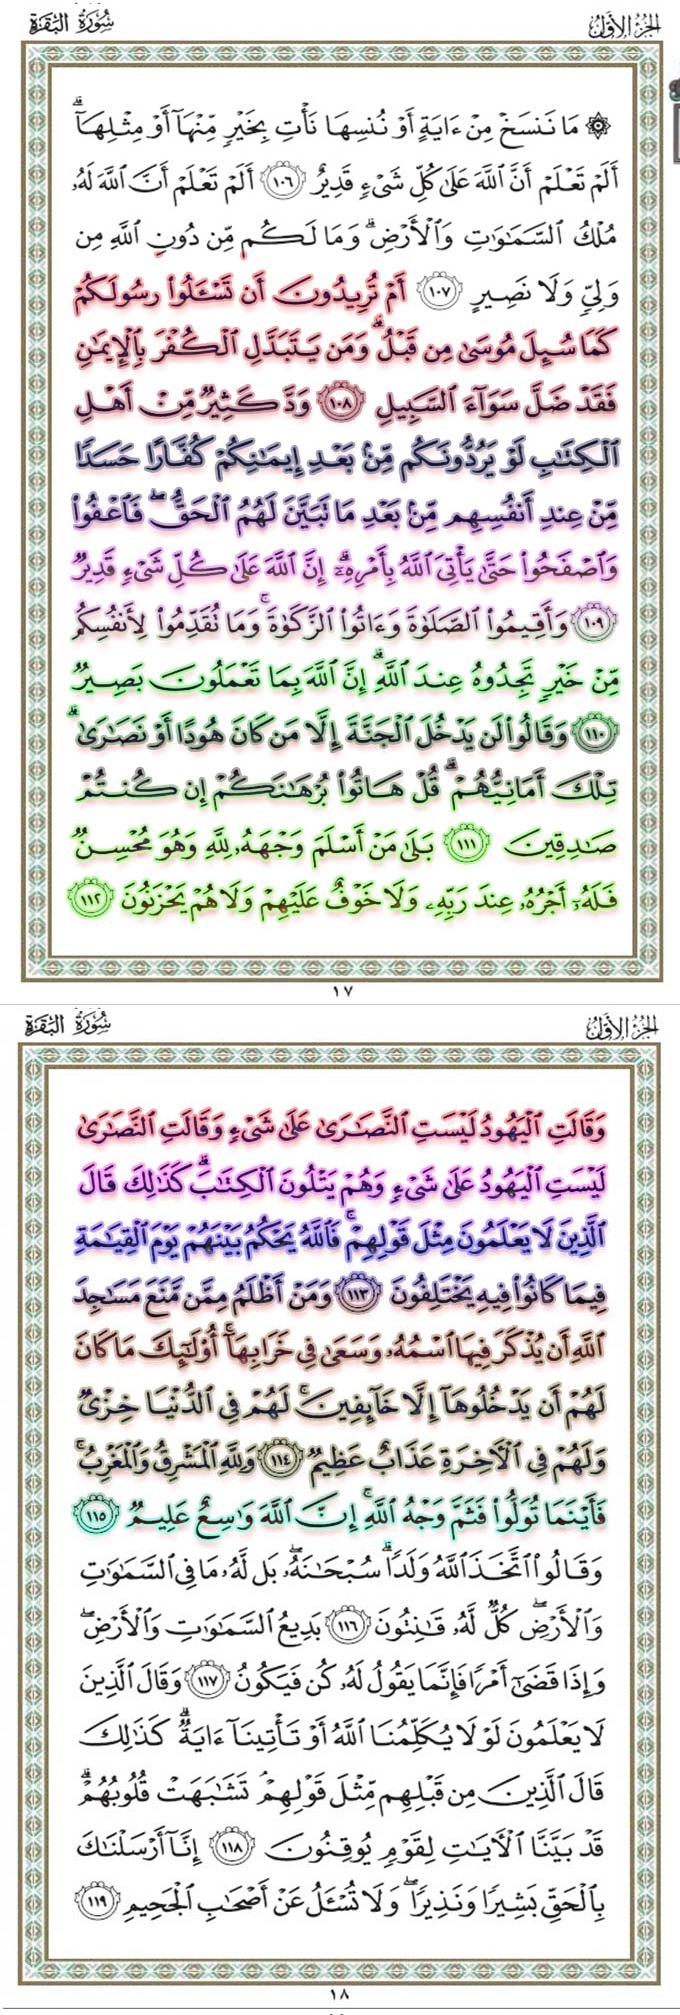 الجزء الأول
سورة البقرة
۞ مَا نَنسَخْ مِنْ ءَايَةٍ أَوْ نُنسِهَا نَأْتِ بِخَيْرٍ مِّنْهَآ أَوْ مِثْلِهَآ ۗ
أَلَمْ تَعْلَمْ أَنَّ ٱللَّهَ عَلَىٰ كُلِّ شَىْءٍ قَدِيرٌ ١٠٦ أَلَمْ تَعْلَمْ أَنَّ ٱللَّهَ لَهُۥ
مُلْكُ ٱلسَّمَٰوَٰتِ وَٱلْأَرْضِ ۗ وَمَا لَكُم مِّن دُونِ ٱللَّهِ مِن
وَلِىٍّ وَلَا نَصِيرٍ ١٠٧ أَمْ تُرِيدُونَ أَن تَسْـَٔلُوا۟ رَسُولَكُمْ
كَمَا سُئِلَ مُوسَىٰ مِن قَبْلُ ۗ وَمَن يَتَبَدَّلِ ٱلْكُفْرَ بِٱلْإِيمَٰنِ
فَقَدْ ضَلَّ سَوَآءَ ٱلسَّبِيلِ ١٠٨ وَدَّ كَثِيرٌ مِّنْ أَهْلِ
ٱلْكِتَٰبِ لَوْ يَرُدُّونَكُم مِّنۢ بَعْدِ إِيمَٰنِكُمْ كُفَّارًا حَسَدًا
مِّنْ عِندِ أَنفُسِهِم مِّنۢ بَعْدِ مَا تَبَيَّنَ لَهُمُ ٱلْحَقُّ ۖ فَٱعْفُوا۟
وَٱصْفَحُوا۟ حَتَّىٰ يَأْتِىَ ٱللَّهُ بِأَمْرِهِۦٓ ۗ إِنَّ ٱللَّهَ عَلَىٰ كُلِّ شَىْءٍ قَدِيرٌ
١٠٩ وَأَقِيمُوا۟ ٱلصَّلَوٰةَ وَءَاتُوا۟ ٱلزَّكَوٰةَ ۚ وَمَا تُقَدِّمُوا۟ لِأَنفُسِكُم
مِّنْ خَيْرٍ تَجِدُوهُ عِندَ ٱللَّهِ ۗ إِنَّ ٱللَّهَ بِمَا تَعْمَلُونَ بَصِيرٌ
١١٠ وَقَالُوا۟ لَن يَدْخُلَ ٱلْجَنَّةَ إِلَّا مَن كَانَ هُودًا أَوْ نَصَٰرَىٰ ۗ
تِلْكَ أَمَانِيُّهُمْ ۗ قُلْ هَاتُوا۟ بُرْهَٰنَكُمْ إِن كُنتُمْ
صَٰدِقِينَ ١١١ بَلَىٰ مَنْ أَسْلَمَ وَجْهَهُۥ لِلَّهِ وَهُوَ مُحْسِنٌ
فَلَهُۥٓ أَجْرُهُۥ عِندَ رَبِّهِۦ وَلَا خَوْفٌ عَلَيْهِمْ وَلَا هُمْ يَحْزَنُونَ ١١٢
١٧
الجزء الأول
سورة البقرة
وَقَالَتِ ٱلْيَهُودُ لَيْسَتِ ٱلنَّصَٰرَىٰ عَلَىٰ شَىْءٍ وَقَالَتِ ٱلنَّصَٰرَىٰ
لَيْسَتِ ٱلْيَهُودُ عَلَىٰ شَىْءٍ وَهُمْ يَتْلُونَ ٱلْكِتَٰبَ ۗ كَذَٰلِكَ قَالَ
ٱلَّذِينَ لَا يَعْلَمُونَ مِثْلَ قَوْلِهِمْ ۚ فَٱللَّهُ يَحْكُمُ بَيْنَهُمْ يَوْمَ ٱلْقِيَٰمَةِ
فِيمَا كَانُوا۟ فِيهِ يَخْتَلِفُونَ ١١٣ وَمَنْ أَظْلَمُ مِمَّن مَّنَعَ مَسَٰجِدَ
ٱللَّهِ أَن يُذْكَرَ فِيهَا ٱسْمُهُۥ وَسَعَىٰ فِى خَرَابِهَآ ۚ أُو۟لَٰٓئِكَ مَا كَانَ
لَهُمْ أَن يَدْخُلُوهَآ إِلَّا خَآئِفِينَ ۚ لَهُمْ فِى ٱلدُّنْيَا خِزْىٌ
وَلَهُمْ فِى ٱلْءَاخِرَةِ عَذَابٌ عَظِيمٌ ١١٤ وَلِلَّهِ ٱلْمَشْرِقُ وَٱلْمَغْرِبُ ۚ
فَأَيْنَمَا تُوَلُّوا۟ فَثَمَّ وَجْهُ ٱللَّهِ ۚ إِنَّ ٱللَّهَ وَٰسِعٌ عَلِيمٌ ١١٥
وَقَالُوا۟ ٱتَّخَذَ ٱللَّهُ وَلَدًا ۗ سُبْحَٰنَهُۥ ۖ بَل لَّهُۥ مَا فِى ٱلسَّمَٰوَٰتِ
وَٱلْأَرْضِ ۖ كُلٌّ لَّهُۥ قَٰنِتُونَ ١١٦ بَدِيعُ ٱلسَّمَٰوَٰتِ وَٱلْأَرْضِ ۖ
وَإِذَا قَضَىٰٓ أَمْرًا فَإِنَّمَا يَقُولُ لَهُۥ كُن فَيَكُونُ ١١٧ وَقَالَ ٱلَّذِينَ
لَا يَعْلَمُونَ لَوْلَا يُكَلِّمُنَا ٱللَّهُ أَوْ تَأْتِينَآ ءَايَةٌ ۗ كَذَٰلِكَ
قَالَ ٱلَّذِينَ مِن قَبْلِهِم مِّثْلَ قَوْلِهِمْ ۘ تَشَٰبَهَتْ قُلُوبُهُمْ ۗ
قَدْ بَيَّنَّا ٱلْءَايَٰتِ لِقَوْمٍ يُوقِنُونَ ١١٨ إِنَّآ أَرْسَلْنَٰكَ
بِٱلْحَقِّ بَشِيرًا وَنَذِيرًا ۖ وَلَا تُسْـَٔلُ عَنْ أَصْحَٰبِ ٱلْجَحِيمِ ١١٩
١٨